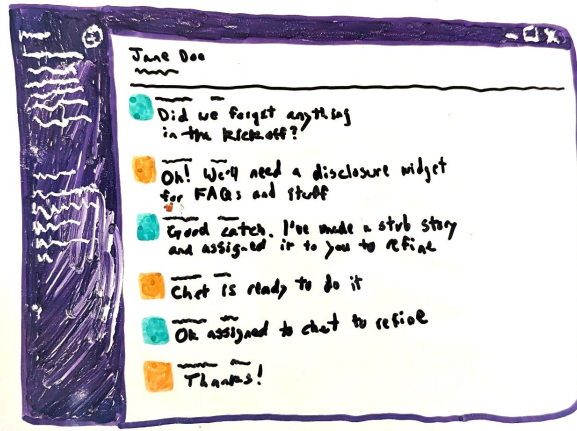 Jane Doe
Did we forget anything
in the kickoff?
Oh! We'll need a disclosure widget
for FAQs and stuff
Good catch. I've made a stub story
and assigned it to you to refine
Chet is ready to do it
Ok assigned to chet to refine
Thanks!